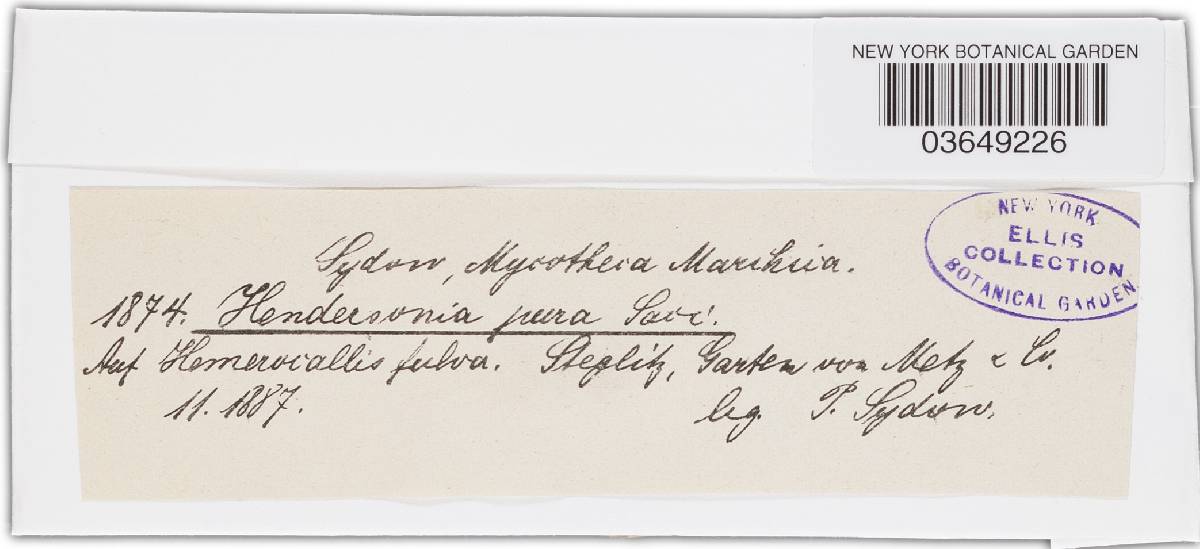 NEW YORK BOTANICAL GARDEN
03649226
NEW YORK
ELLIS
COLLECTION
BOTANICAL GARDEN
Sydow, Mycotheca Marchica.
1874. Hendersonia pura Sacc.
Auf Hemerocallis fulva. Steglitz, Garten von Metz & Co.
11. 1887. leg. P. Sydow.